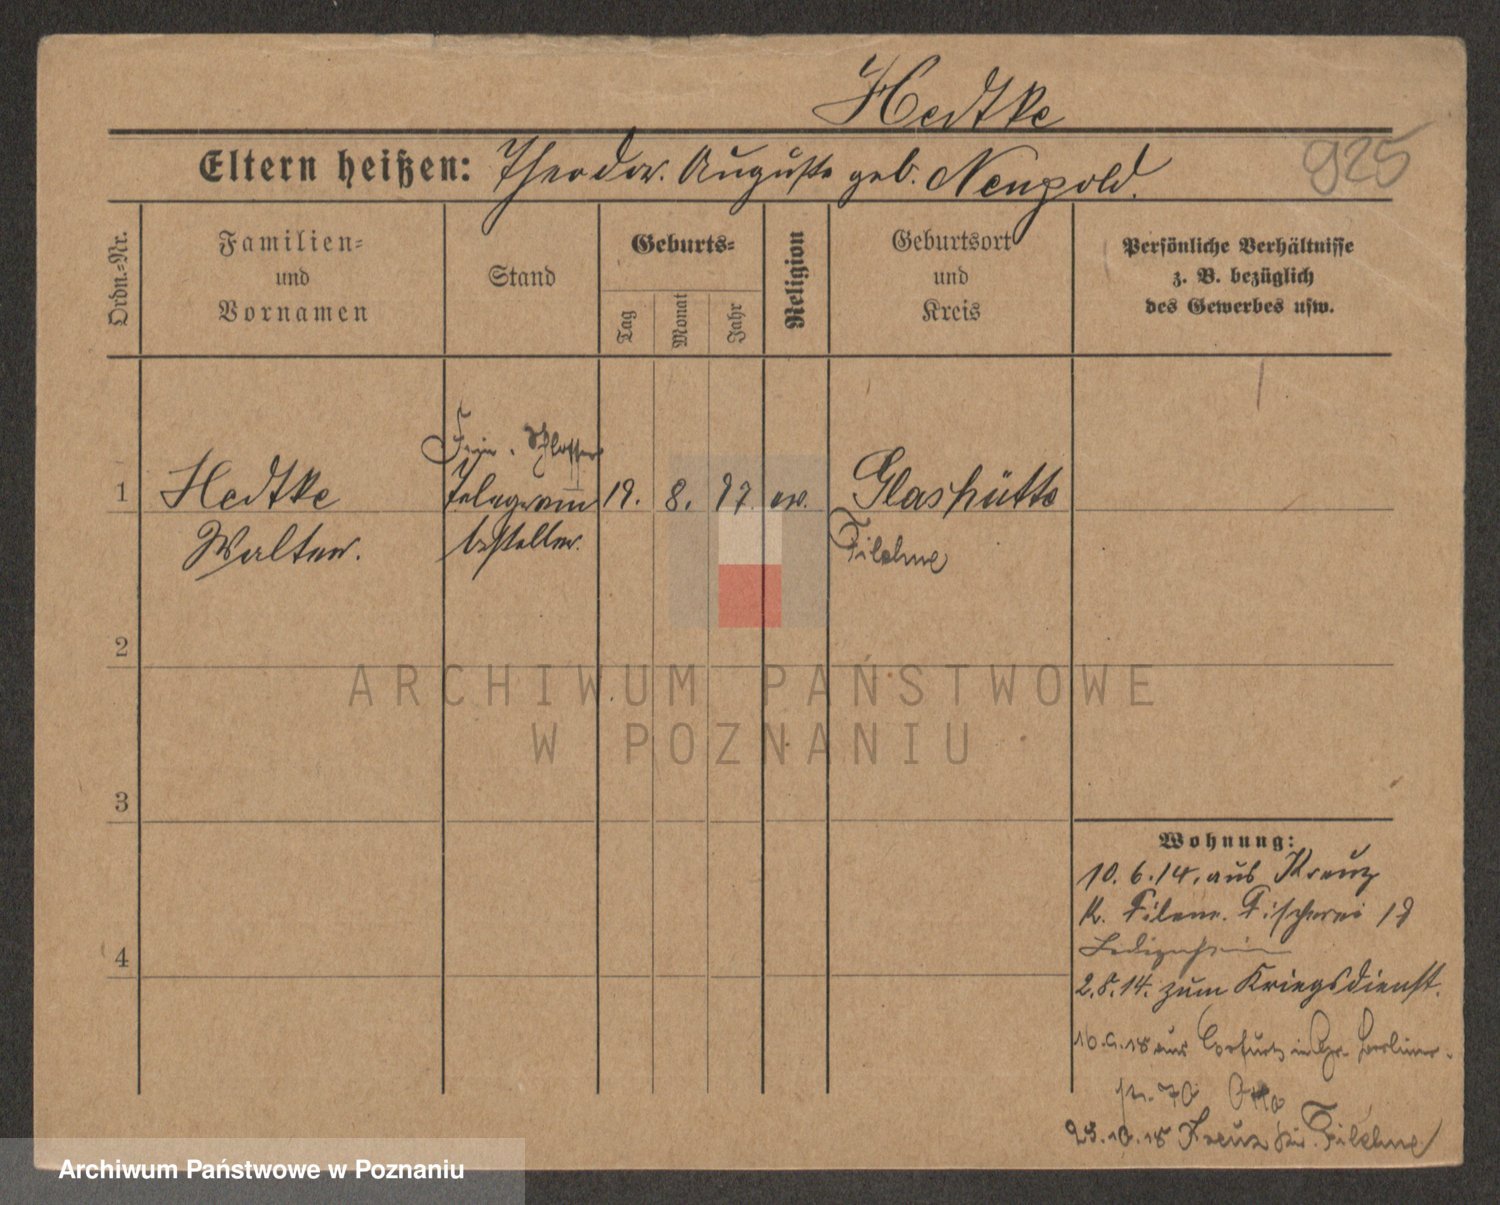 Hedtke
925
Eltern heißen: Theodor. Auguste geb. Neupold.
Ordn.-Nr.
Familien-
und
Vornamen
Stand
Geburts-
Tag
Monat
Jahr
Religion
Geburtsort
und
Kreis
Persönliche Verhältnisse
z. B. bezüglich
des Gewerbes usw.
Schlosser
1 Hedtke Telegram 19. 8. 97 ev. Glashütte
Walter. besteller. Filehne
2
ARCHIWUM PAŃSTWOWE
W POZNANIU
3
4
Wohnung:
10. 6. 14. aus Kreuz
K. Filehne. Fischerei 19
Ledigenheim
2. 8. 14. zum Kriegsdienst.
aus Erfurt in Gr. Berliner-
str. 70 Otto
23. 10. 18 Kreuz Kr. Filehne
Archiwum Państwowe w Poznaniu